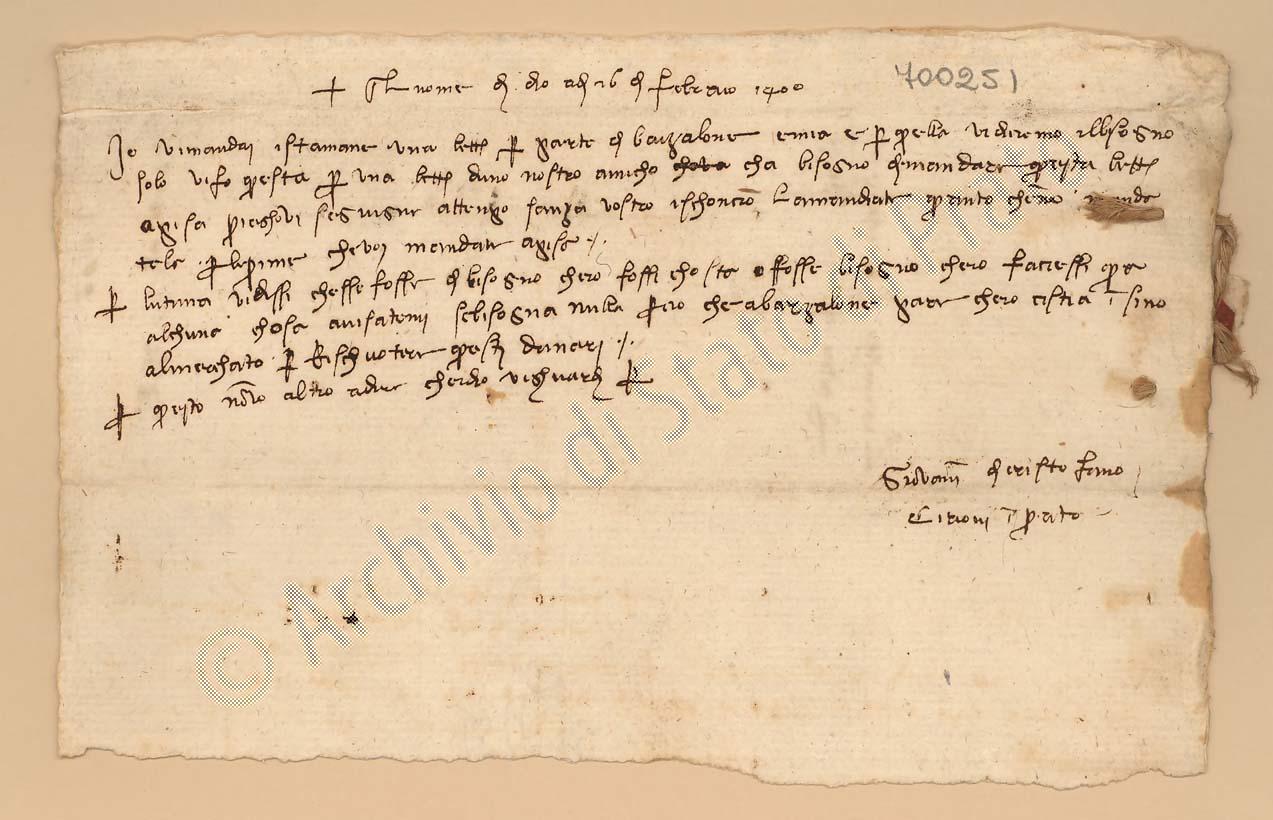 + Al nome di dio adi 16 di febraio 1400
700251
Io vi mandai istamane una letta per parte di barzalone e mia e per quella vi diremo il bisogno
solo vi fo questa per una letta duno nostro amicho cha bisogno di mandare questa letta
a pisa priechovi seghuisne attengo sanza vostro ischoncio la mandiate
tele per le prime che voi mandate a pisa
per lutima vi dissi che sse fosse di bisogno chero fossi chosta o fosse bisogno chero facessi
alchuna chosa avisatemi se bisogna nulla percio che a barzalone pare chero istia isino
al merchato per rischuotere questi danari
per questo non vo altro a dire che idio vi ghuardi per
Giovanni di cristofano
Cirioni i prato
© Archivio di Stato di Prato